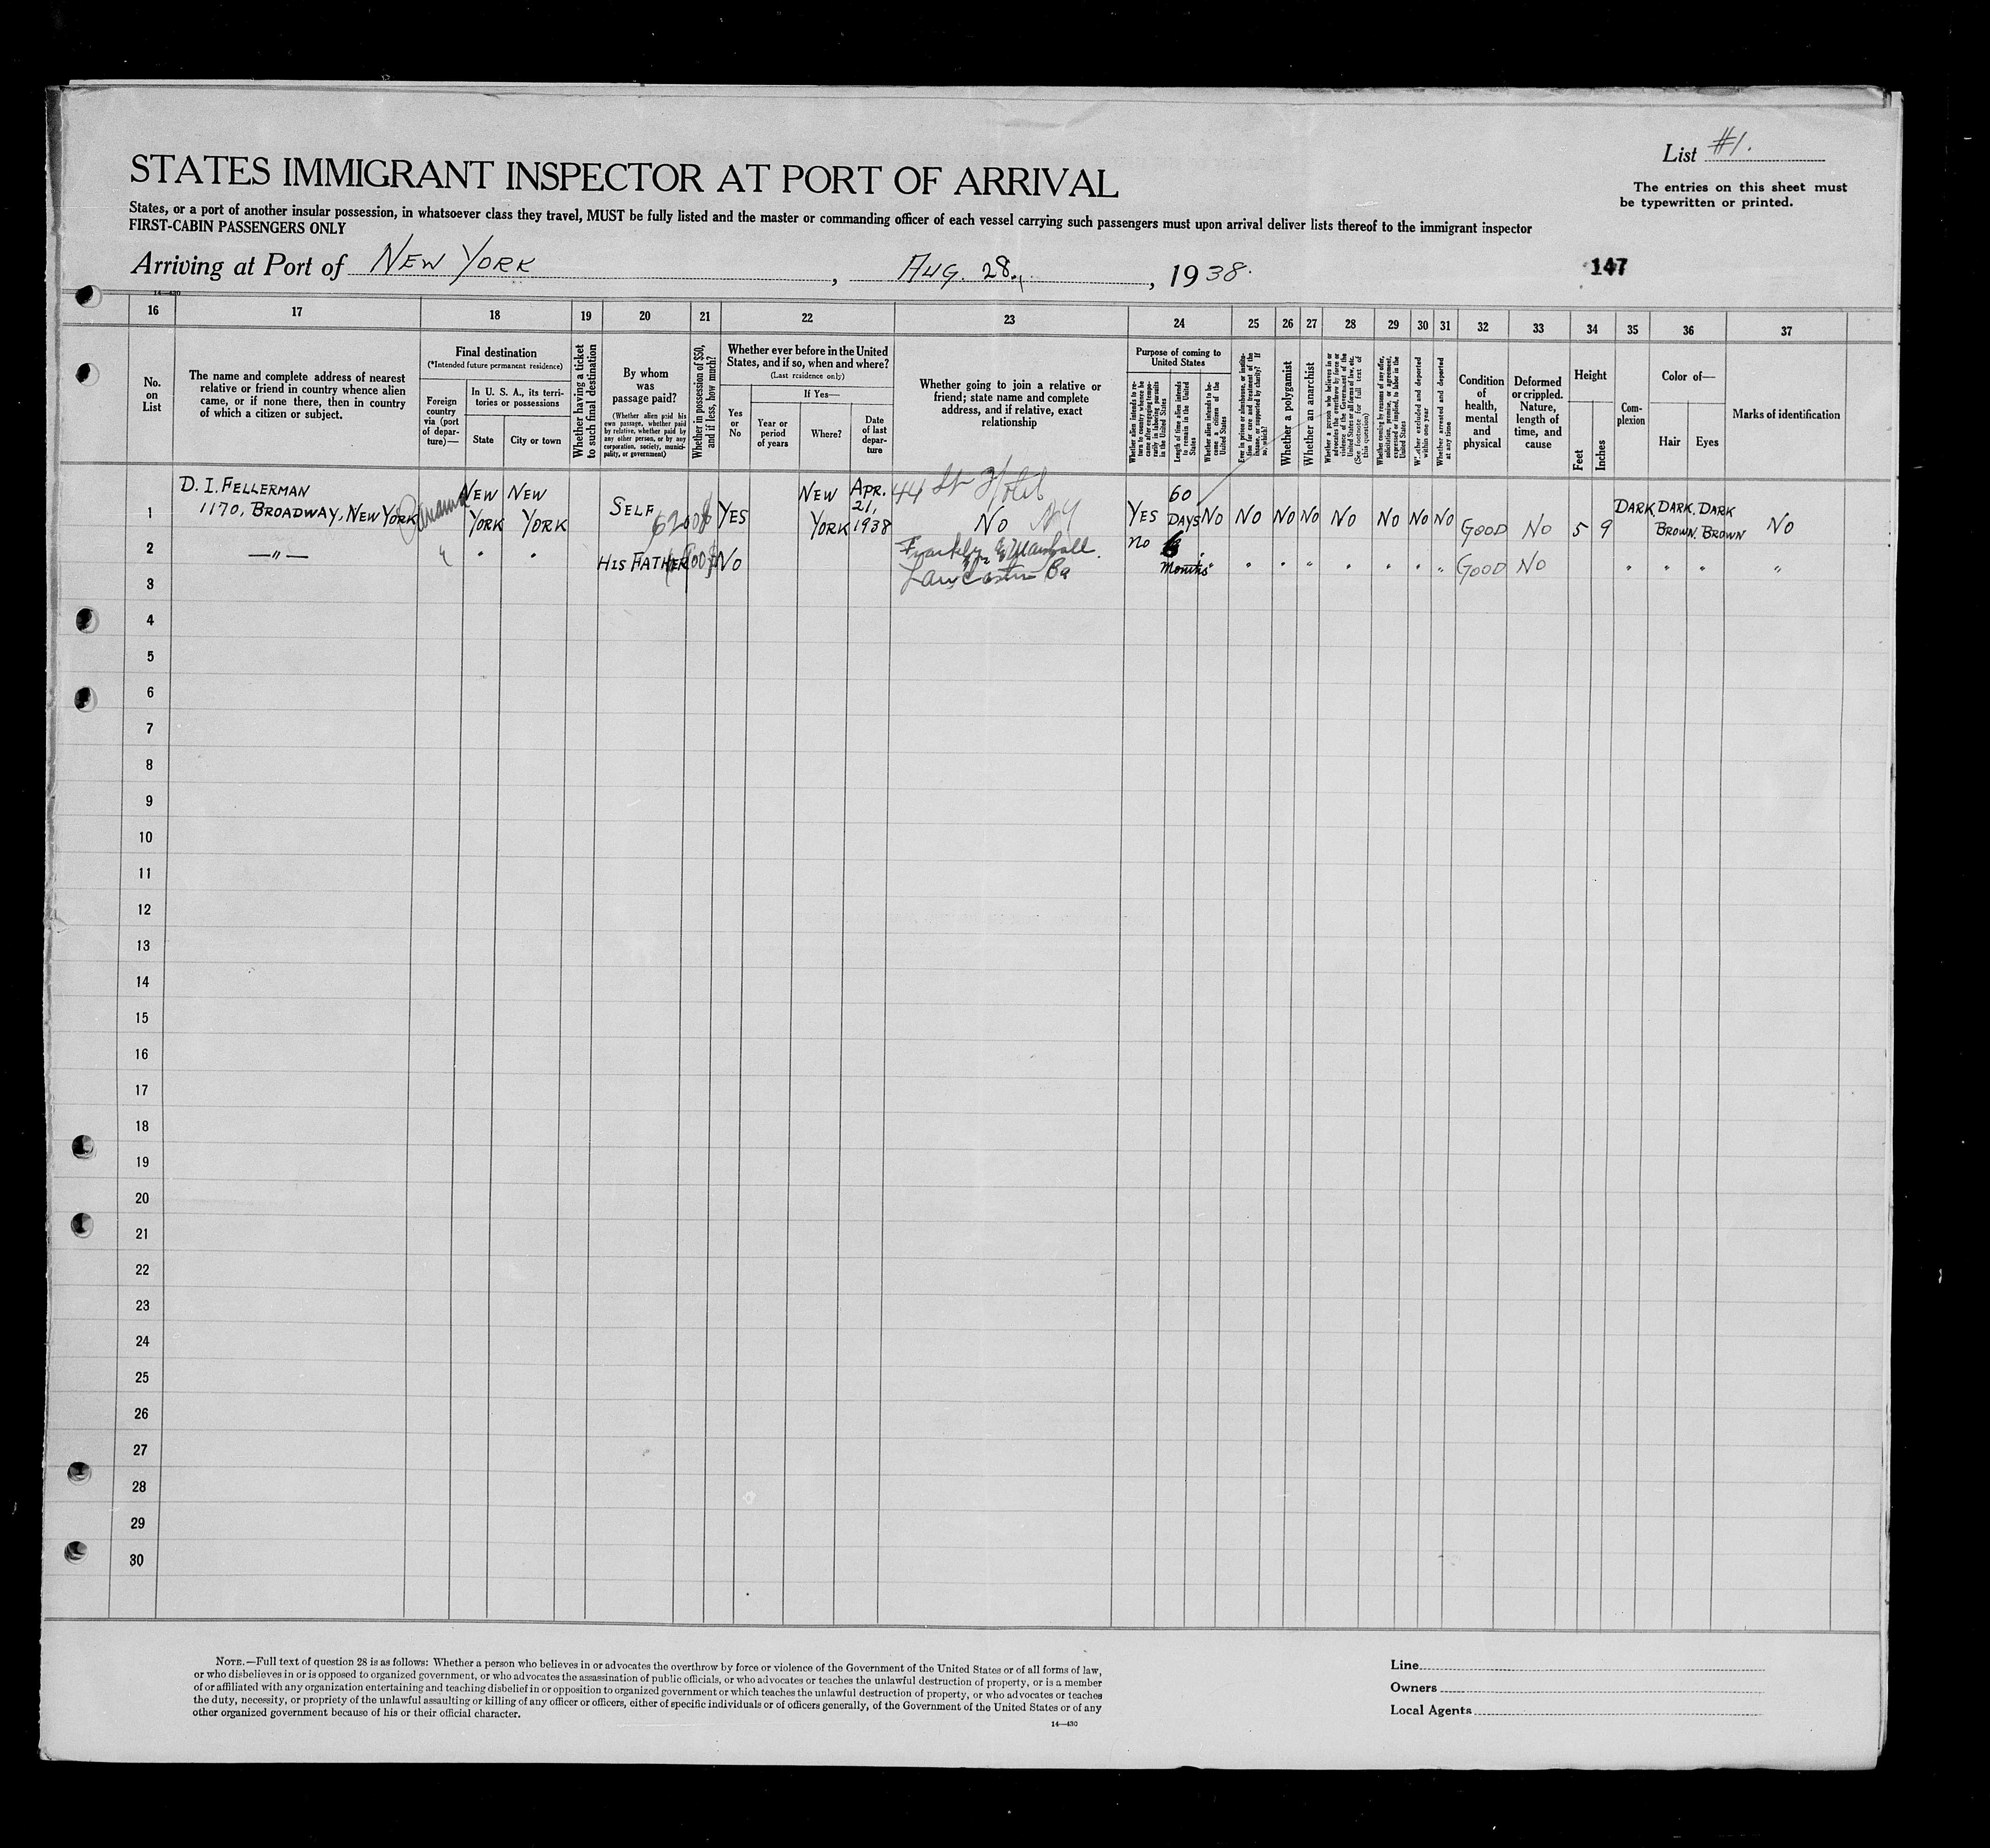 List #1.
STATES IMMIGRANT INSPECTOR AT PORT OF ARRIVAL
The entries on this sheet must
be typewritten or printed.
States, or a port of another insular possession, in whatsoever class they travel, MUST be fully listed and the master or commanding officer of each vessel carrying such passengers must upon arrival deliver lists thereof to the immigrant inspector
FIRST-CABIN PASSENGERS ONLY
Arriving at Port of NEW YORK, AUG. 28., 1938.
147
14—430
16 17 18 19 20 21 22 23 24 25 26 27 28 29 30 31 32 33 34 35 36 37
No.
on
List
The name and complete address of nearest
relative or friend in country whence alien
came, or if none there, then in country
of which a citizen or subject.
Final destination
(*Intended future permanent residence)
Foreign
country
via (port
of depar-
ture)—
In U. S. A., its terri-
tories or possessions
State
City or town
Whether having a ticket
to such final destination
By whom
was
passage paid?
(Whether alien paid his
own passage, whether paid
by relative, whether paid by
any other person, or by any
corporation, society, munici-
pality, or government)
Whether in possession of $50,
and if less, how much?
Whether ever before in the United
States, and if so, when and where?
(Last residence only)
Yes
or
No
If Yes—
Year or
period
of years
Where?
Date
of last
depar-
ture
Whether going to join a relative or
friend; state name and complete
address, and if relative, exact
relationship
Purpose of coming to
United States
Whether alien intends to re-
turn to country whence he
came after engaging tempo-
rarily in laboring pursuits
in the United States
Length of time alien intends
to remain in the United
States
Whether alien intends to be-
come a citizen of the
United States
Ever in prison or almshouse, or institu-
tion for care and treatment of the
insane, or supported by charity? If
so, which?
Whether a polygamist
Whether an anarchist
Whether a person who believes in or
advocates the overthrow by force or
violence of the Government of the
United States or all forms of law, etc.
(See footnote for full text of
this question)
Whether coming by reasons of any offer,
solicitation, promise, or agreement,
expressed or implied, to labor in the
United States
Whether excluded and deported
within one year
Whether arrested and deported
at any time
Condition
of
health,
mental
and
physical
Deformed
or crippled.
Nature,
length of
time, and
cause
Height
Feet
Inches
Com-
plexion
Color of—
Hair
Eyes
Marks of identification
1 D. I. FELLERMAN
1170, BROADWAY, NEW YORK
Panama
NEW
YORK
NEW
YORK
SELF
YES
NEW
YORK
APR.
21,
1938
44 St Hotel
No NY
YES
60
DAYS
NO NO NO NO NO NO NO NO
GOOD NO 5 9
DARK
DARK
BROWN.
DARK
BROWN
NO
2 —"— " " " HIS FATHER NO
Franklin & Marshall
no 6
Months
" " " " " " " " GOOD NO " " " "
3
4
5
6
7
8
9
10
11
12
13
14
15
16
17
18
19
20
21
22
23
24
25
26
27
28
29
30
NOTE.—Full text of question 28 is as follows: Whether a person who believes in or advocates the overthrow by force or violence of the Government of the United States or of all forms of law,
or who disbelieves in or is opposed to organized government, or who advocates the assassination of public officials, or who advocates or teaches the unlawful destruction of property, or is a member
of or affiliated with any organization entertaining and teaching disbelief in or opposition to organized government or which teaches the unlawful destruction of property, or who advocates or teaches
the duty, necessity, or propriety of the unlawful assaulting or killing of any officer or officers, either of specific individuals or of officers generally, of the Government of the United States or of any
other organized government because of his or their official character.
14—430
Line
Owners
Local Agents